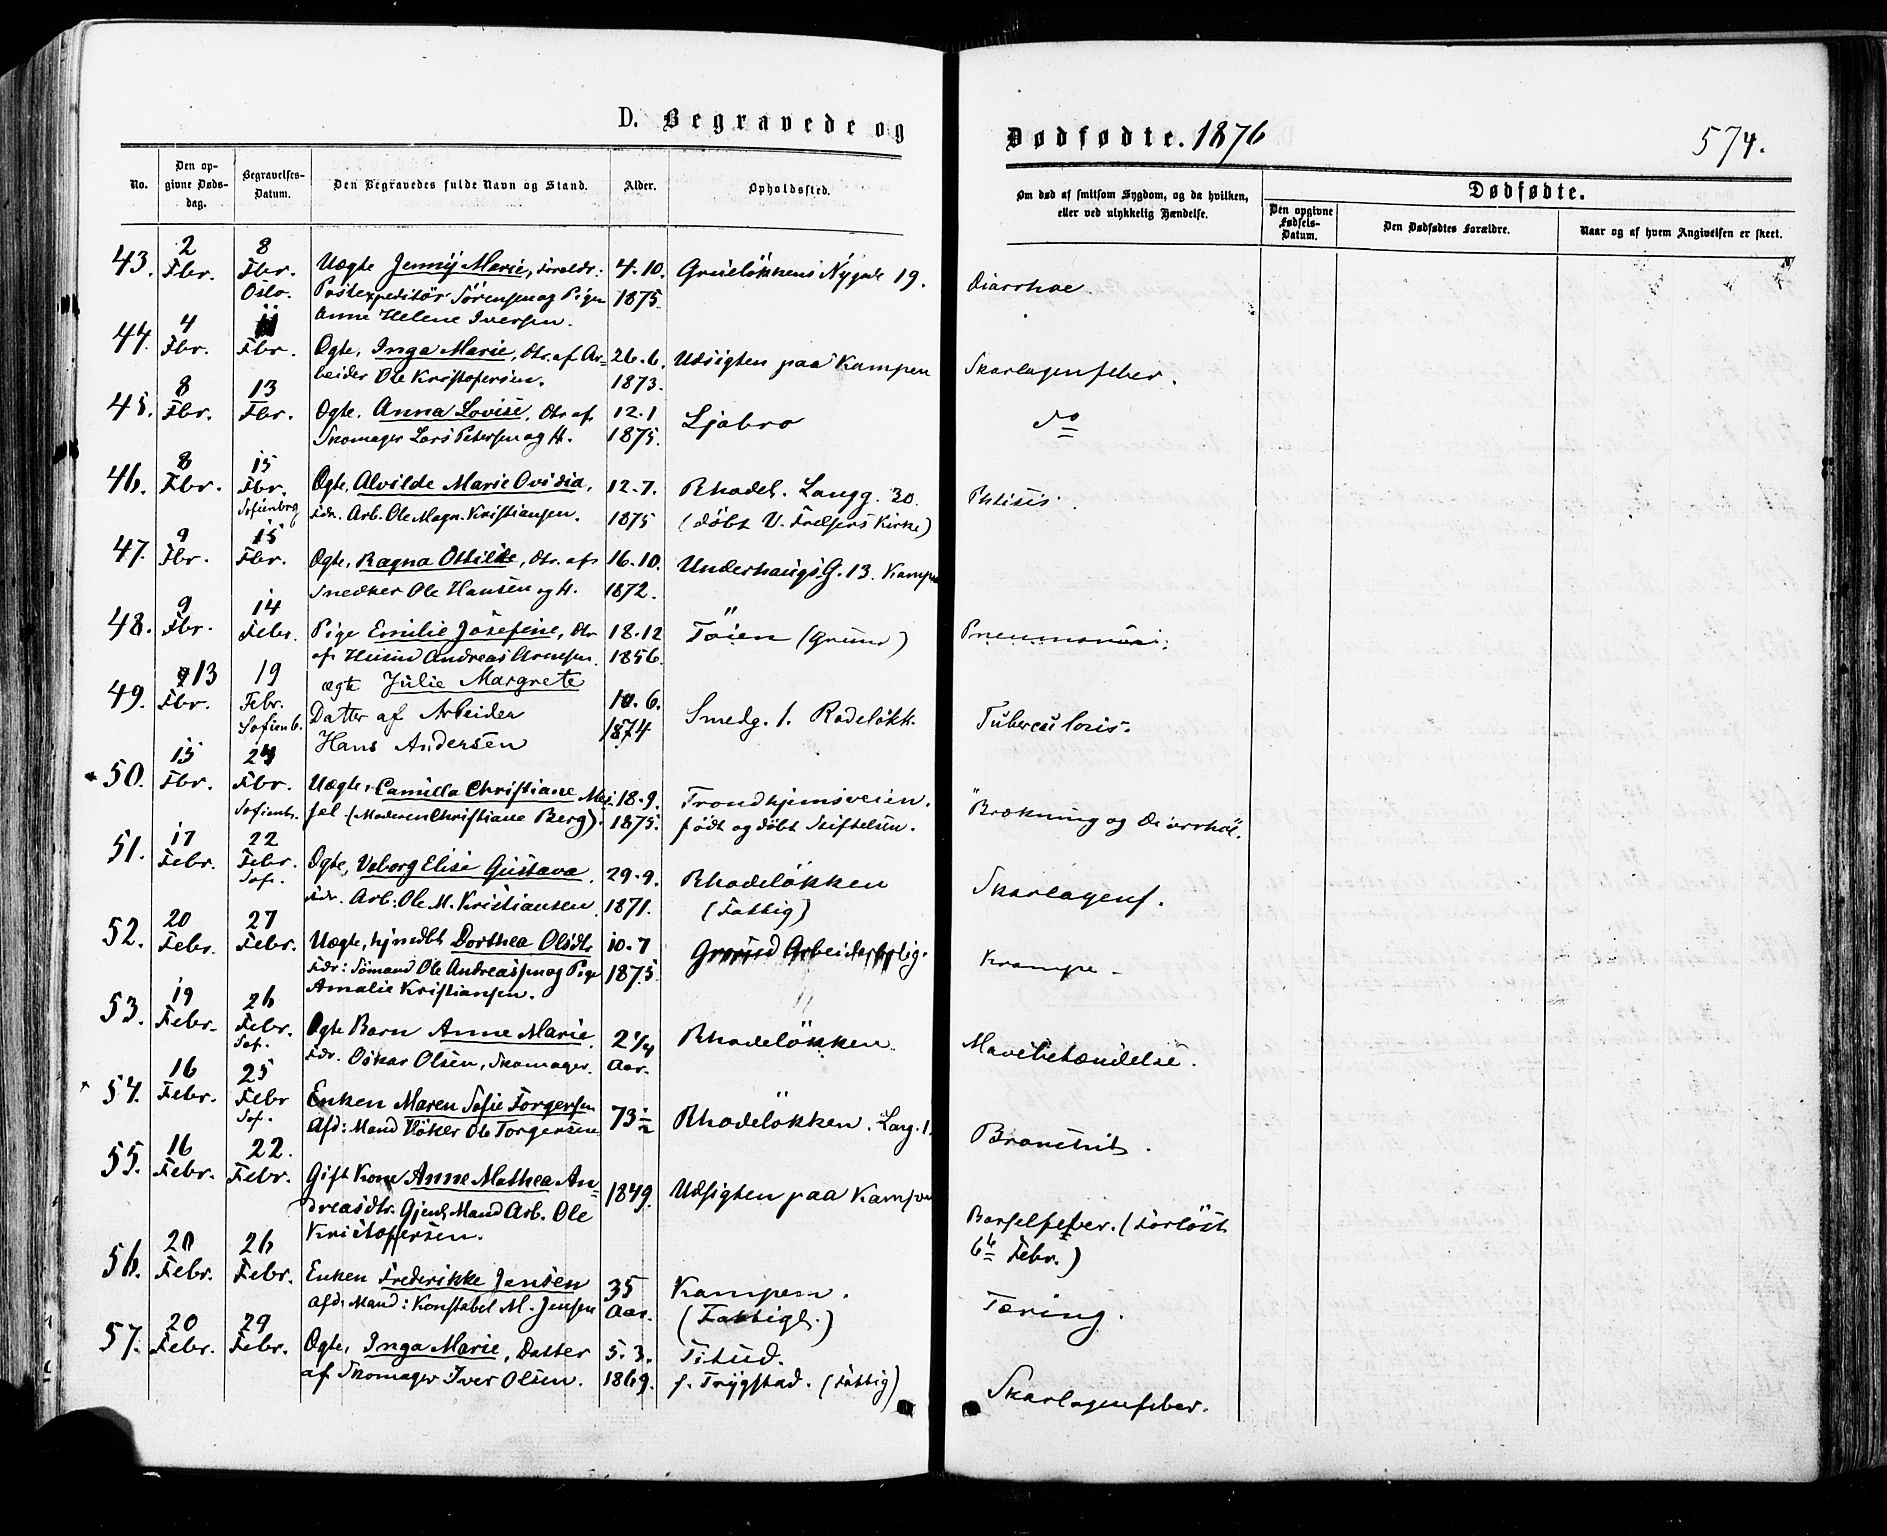 D. Begravede og
Dødfødte. 1876
574.
No.
Den opgivne Dødsdag.
Begravelses-Datum.
Den Begravedes fulde Navn og Stand.
Alder.
Opholdssted.
Om død af smitsom Sygdom, og da hvilken, eller ved ulykkelig Hændelse.
Dødfødte.
Den opgivne Fødsels-Datum.
Den Dødfødtes Forældre.
Naar og af hvem Angivelsen er skeet.
43. 2 Fbr. 8 Fbr. Oslo. Uægte Jenny Marie, Foreldr: 4-10. 1875. Grüneløkkens Nygade 19. Diarrhoe.
Postexpeditør Sørensen og Pigen
Anne Helene Iversen.
44. 4 Fbr. 11 Fbr. Ægte, Inga Marie, Dtr. af Ar- 26-6. 1873. Udsigten paa Kampen Skarlagenfeber.
beider Ole Kristofersen.
45. 8 Fbr. 13 Fbr. Ægte. Anna Lovise, Dtr af 12-1 1875. Ljabro do
Skomager Lars Petersen og H.
46. 8 Fbr. 15 Fbr. Sofienbrg Ægte, Alvilde Marie Ovidia, 12-7. 1875 Rhodel. Langg. 30. Phtisis.
Fdr. Arb. Ole Magn. Kristiansen. (døbt V. Frelsers Kirke)
47. 9 Fbr. 15 Fbr. Ægte, Ragna Ottilie, Dtr. af 16-10. 1872. Underhaugs G. 13. Kampen
Snedker Ole Hansen og H.
48. 9 Fbr. 14 Febr. Pige Emilie Josefine, Dtr 18-12 1856. Tøien (Grund) Pneumoni.
af Husmd Andreas Arnesen.
49. 13 Fbr. 19 Febr. Sofienb. ægte Julie Margrete 10-6. 1874 Smedg. 1. Rodeløkk. Tuberculosis.
Datter af Arbeider
Hans Andersen
50. 15 Fbr. 24 Fbr. Sofienb. Uægte, Camilla Christiane Mei- 18-9. 1875. Trondhjemsveien. Brækning og Diarrhoe.
sel (Moderen Christiane Berg). født og døbt Stiftelsen.
51. 17 Febr. 22 Febr. Sof. Ægte, Valborg Elise Gustava 29-9. 1871. Rhodeløkken Skarlagenf.
Fdr. Arb: Ole M. Kristiansen. (Fattig)
52. 20 Febr. 27 Febr. Uægte, hjmdbt Dorthea Olsdtr 10-7 1875 Grønd Arbeiderbolig. Krampe
Fdr: Sømand Ole Andreassen og Pige
Amalie Kristiansen.
53. 19 Febr. 26 Febr. Sof. Ægte Barn Anne Marie 2 1/4 Aar. Rhodeløkken. Mavebetændelse.
Fdr. Oskar Olsen, Skomager.
54. 16 Febr. 25 Febr Sof. Enken Maren Sofie Torgersen 73 1/2 Rhodeløkken. Lang. 1. Bronchit.
Afd: Mand Høker Ole Torgersen
55. 16 Febr. 22. Febr. Gift Kone Anne Mathea An- 1849. Udsigten paa Kampen Barselfeber. (Forløst
dreasdtr. Gjenl. Mand Arb. Ole 6te Febr.)
Kristofersen.
56. 20 Febr. 26 Febr. Enken Frederikke Jensen 35 Aar. Kampen. Tæring.
afd: Mand: Konstabel M. Jensen (Fattigl.)
57. 20 Febr. 29 Febr. Ægte, Inga Marie, Datter 5-3. 1869. Titud. Skarlagenfeber.
af Skomager Iver Olsen. f. Trygstad. (Fattig)